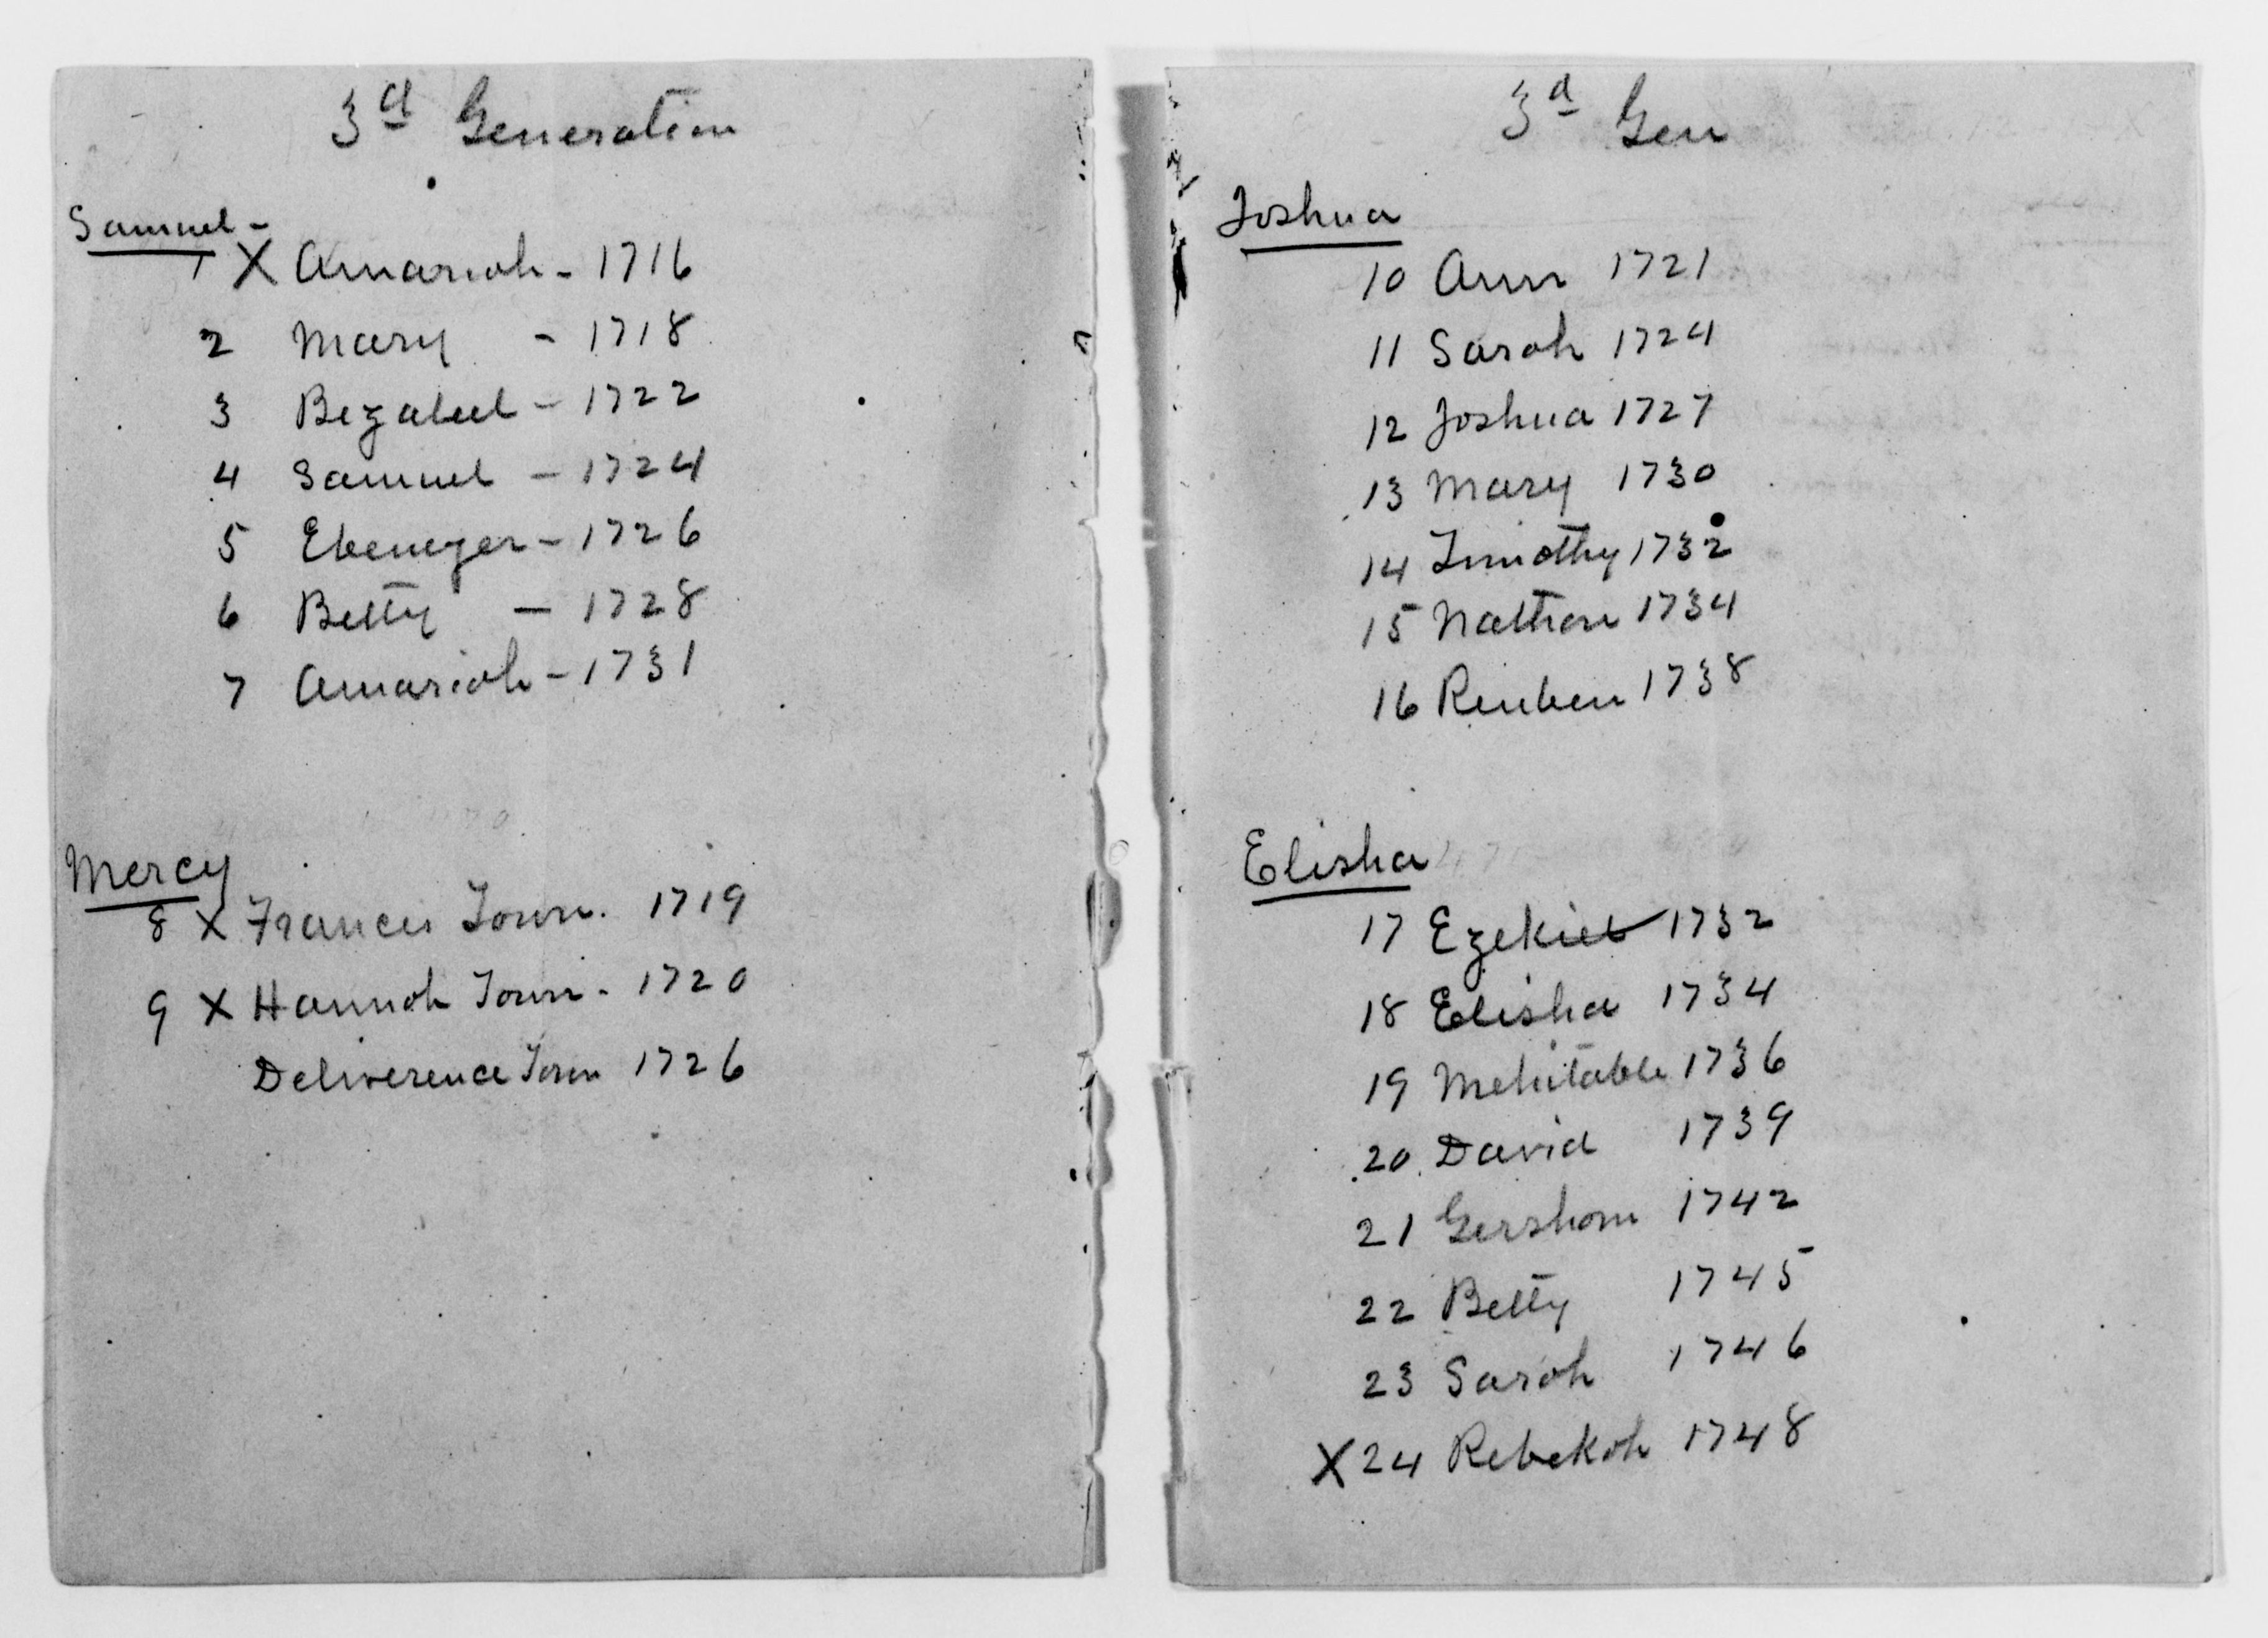 3d Generation
Samuel -
1 X Amariah - 1716
2 Mary - 1718
3 Bezaleel - 1722
4 Samuel - 1724
5 Ebenezer - 1726
6 Betty - 1728
7 Amariah - 1731
Mercy
8 X Francis Town. 1719
9 X Hannah Town - 1720
Deliverence Town 1726
3d Gen
Joshua
10 Ann 1721
11 Sarah 1724
12 Joshua 1727
13 Mary 1730
14 Timothy 1732
15 Nathan 1734
16 Reuben 1738
Elisha
17 Ezekiel 1732
18 Elisha 1734
19 Mehitable 1736
20 David 1739
21 Gershom 1742
22 Betty 1745
23 Sarah 1746
X 24 Rebekah 1748